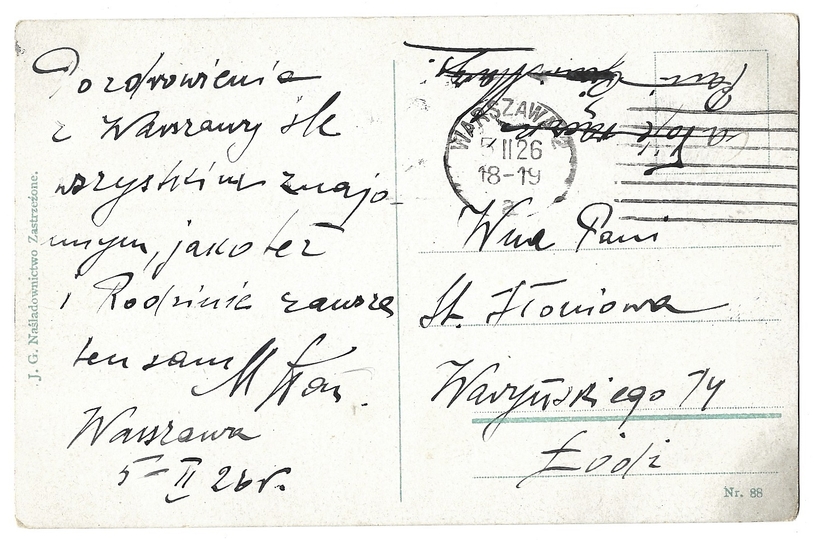 Pozdrowienia
z Warszawy śle
wszystkim znajo-
mym, jako też
i Rodzinie zawsze
ten sam
Warszawa
5 II 26 r.
J. G. Naśladownictwo Zastrzeżone.
WARSZAWA 2
5 II 26
18-19
a
Wna Pani
St. Słoniowa
Waryńskiego 74
Łódź
Nr. 88